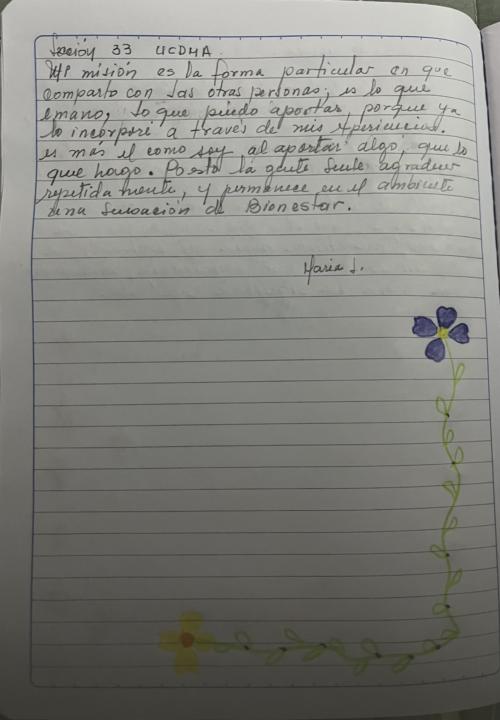 Lección 33 UCDMA.
Mi misión es la forma particular en que
comparto con las otras personas, es lo que
emano, lo que puedo aportar porque ya
lo incorporé a través de mis experiencias.
es más el como soy al aportar algo, que lo
que hago. Por esto la gente suele agradecer
repetidamente, y permanece en el ambiente
una sensación de Bienestar.
Maria J.